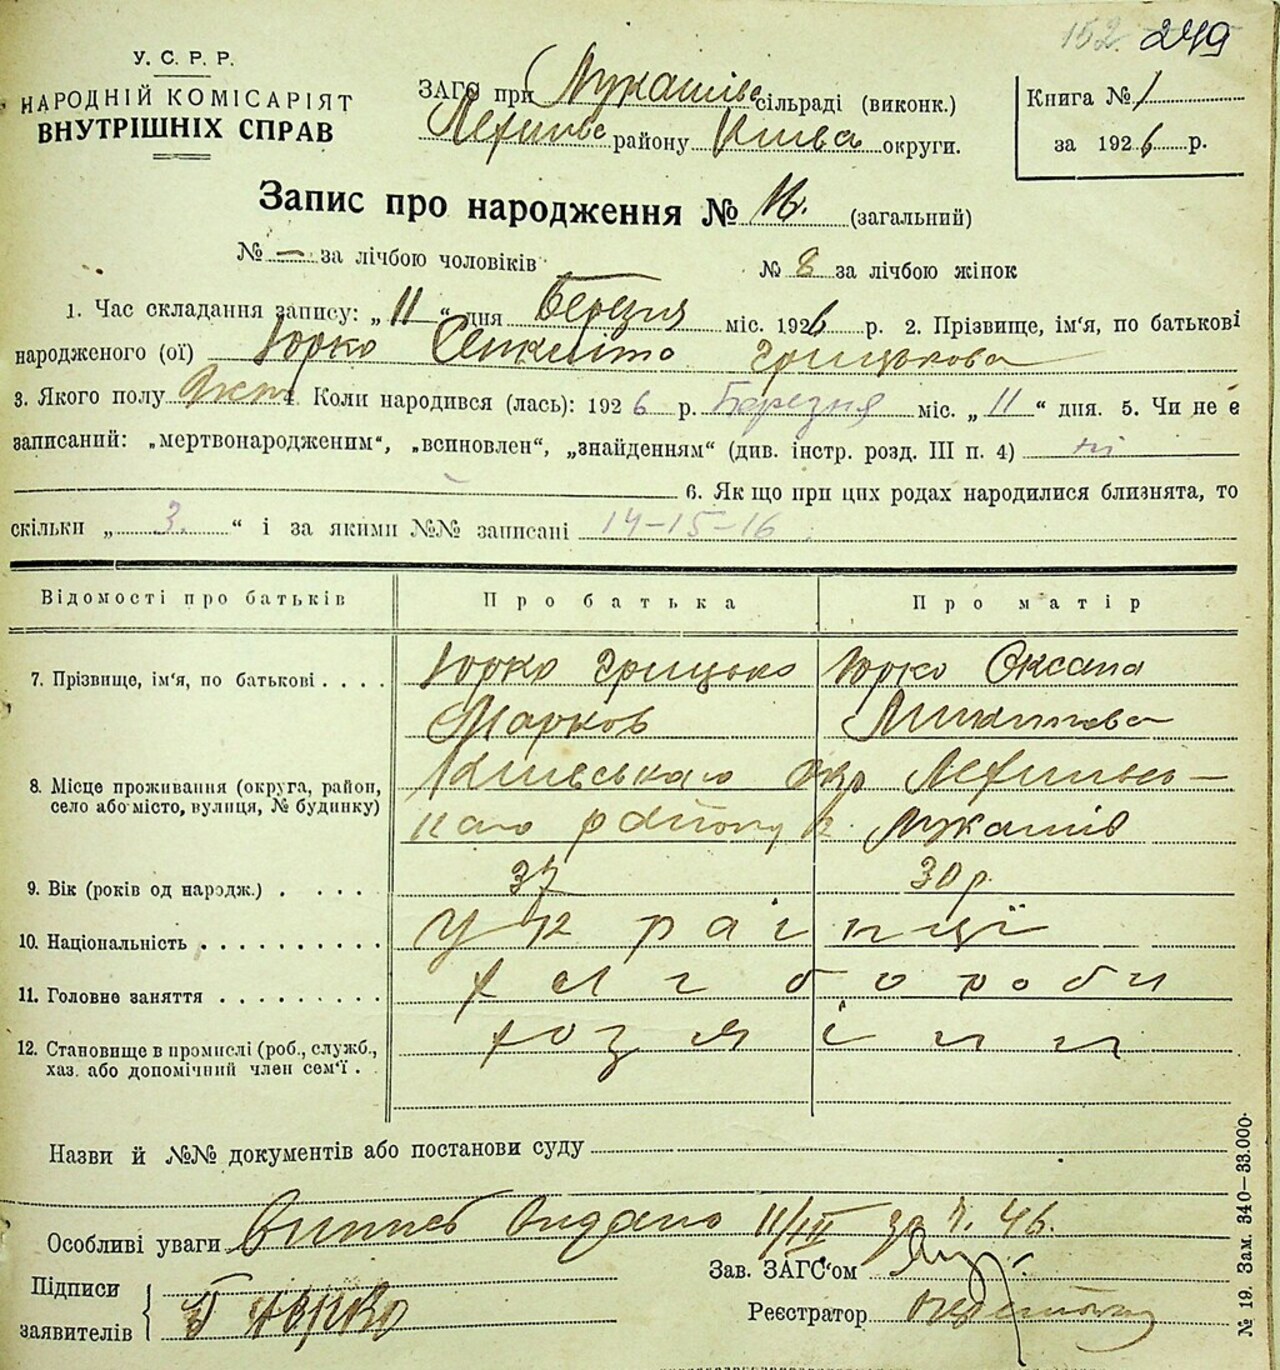 152. 249
У. С. Р. Р.
НАРОДНІЙ КОМІСАРІЯТ
ВНУТРІШНІХ СПРАВ
ЗАГС при Лукашівс сільраді (виконк.)
району Київс округи.
Книга № 1
за 1926 р.
Запис про народження № 16. (загальний)
№ — за лічбою чоловіків № 8 за лічбою жінок
1. Час складання запису: „11“ дня Березня міс. 1926 р. 2. Прізвище, ім'я, по батькові
народженого (ої) Юрко Грицькова
3. Якого полу Жін 4. Коли народився (лась): 1926 р. Березня міс. „11“ дня. 5. Чи не є
записаний: „мертвонародженим“, „всиновлен“, „знайденням“ (див. інстр. розд. III п. 4) ні
6. Якщо при цих родах народилися близнята, то
скільки „3.“ і за якими №№ записані 14-15-16.
Відомості про батьків Про батька Про матір
7. Прізвище, ім'я, по батькові . . . . Юрко Грицько Юрко Оксана
Марков Микитова
8. Місце проживання (округа, район, Київського окр
село або місто, вулиця, № будинку) району Лукашів
9. Вік (років од народж.) . . . . . 37 30 р.
10. Національність . . . . . . . . . . українці
11. Головне заняття . . . . . . . . . хлібороби
12. Становище в промислі (роб., служб., хозяіни
хаз. або допомічний член сем'ї .
Назви й №№ документів або постанови суду
Особливі уваги Виписъ видано 11/III за ч. 46.
Підписи
заявителів Г Юрко
Зав. ЗАГС'ом
Реєстратор
№ 19. Зам. 340—33.000.